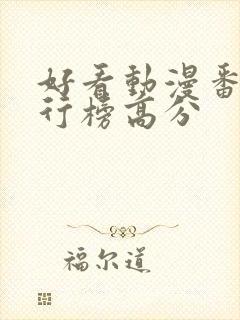 好看動漫番
行榜高分
福尔道